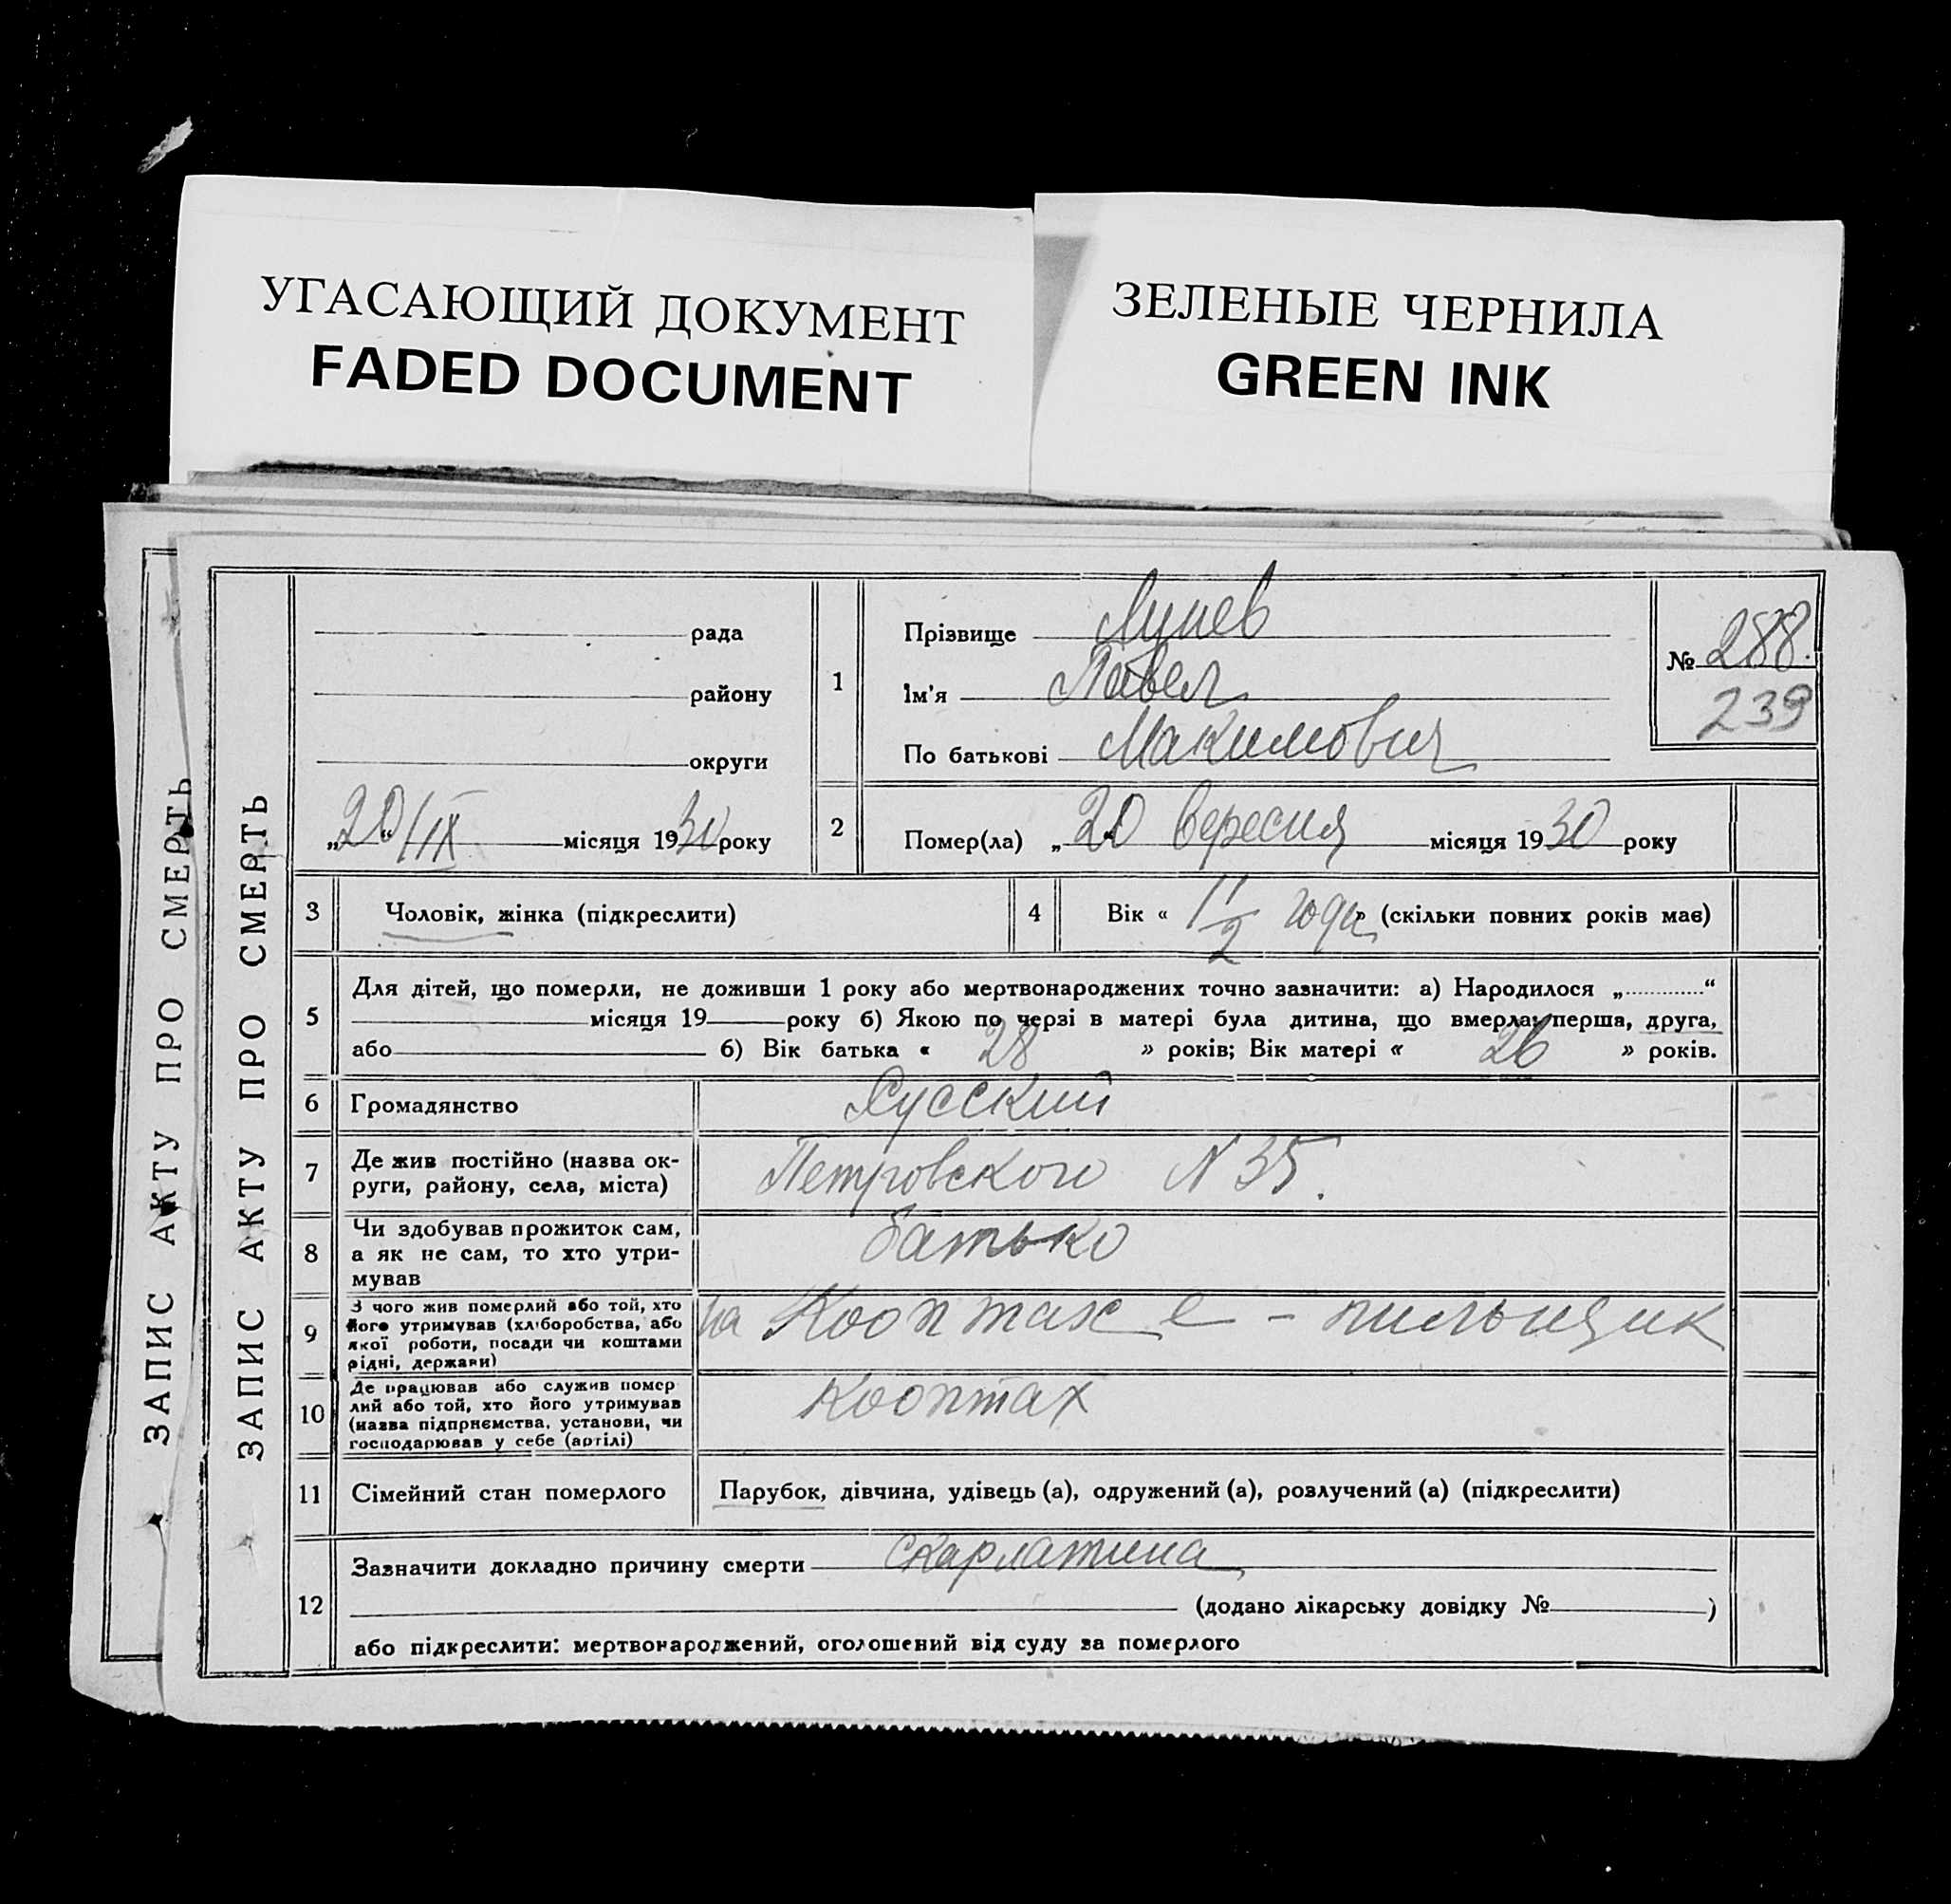 УГАСАЮЩИЙ ДОКУМЕНТ
FADED DOCUMENT
ЗЕЛЕНЫЕ ЧЕРНИЛА
GREEN INK
ЗАПИС АКТУ ПРО СМЕРТЬ
ЗАПИС АКТУ ПРО СМЕРТЬ
рада
району
округи
„20/IX місяця 1930 року
1
Прізвище Лунев
Ім'я Павел
По батькові Макимович
№ 288.
239
2 Помер(ла) „20 вересня місяця 1930 року
3 Чоловік, жінка (підкреслити)
4 Вік « 1 1/2 года » (скільки повних років має)
5 Для дітей, що померли, не доживши 1 року або мертвонароджених точно зазначити: а) Народилося „............“
місяця 19 року б) Якою по черзі в матері була дитина, що вмерла: перша, друга,
або б) Вік батька « 28 » років; Вік матері « 26 » років.
6 Громадянство Русский
7 Де жив постійно (назва округи, району, села, міста) Петровского N 35.
8 Чи здобував прожиток сам,
а як не сам, то хто утри-
мував батько
9 З чого жив померлий або той, хто
його утримував (хліборобства, або
якої роботи, посади чи коштами
рідні, держави) на Кооптахе - пильщик
10 Де працював або служив помер
лий або той, хто його утримував
(назва підприємства, установи, чи
господарював у себе (артілі) Кооптах
11 Сімейний стан померлого Парубок, дівчина, удівець (а), одружений (а), розлучений (а) (підкреслити)
12 Зазначити докладно причину смерти скарлатина
(додано лікарську довідку № )
або підкреслити: мертвонароджений, оголошений від суду за померлого